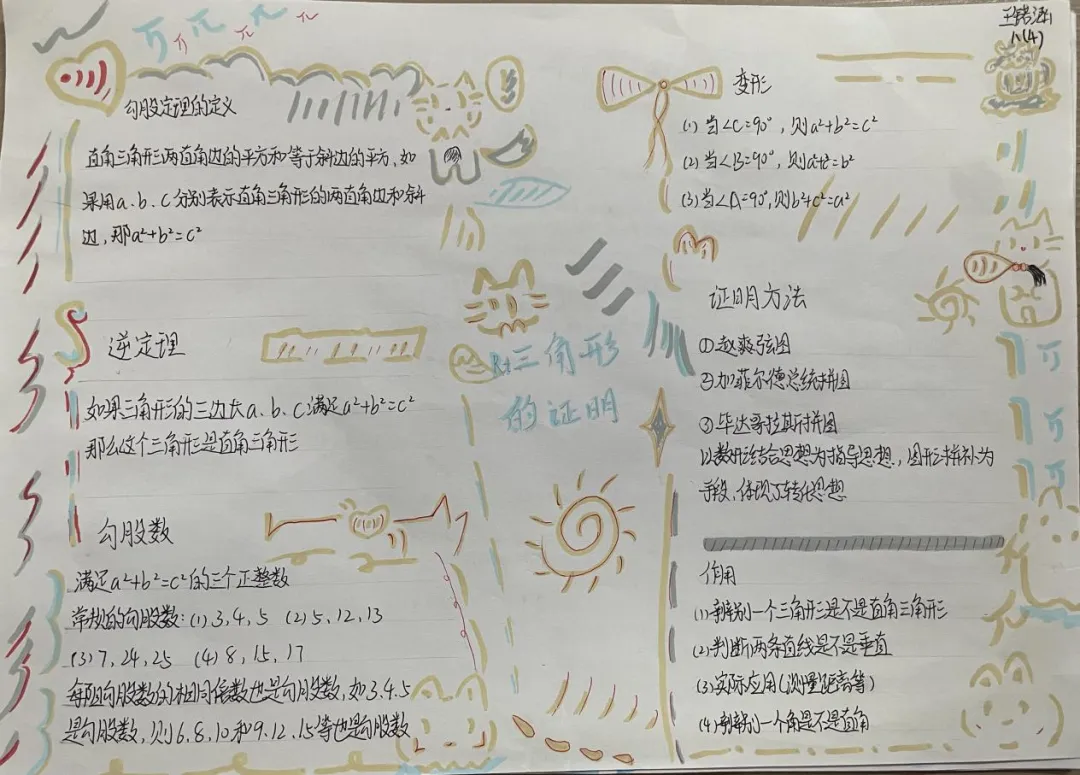 八(4)
勾股定理的定义
直角三角形两直角边的平方和等于斜边的平方,如
果用a、b、c分别表示直角三角形的两直角边和斜
边,那a²+b²=c²
逆定理
如果三角形的三边长a、b、c满足a²+b²=c²
那么这个三角形是直角三角形
勾股数
满足a²+b²=c²的三个正整数
常规的勾股数:(1)3,4,5 (2)5,12,13
(3)7,24,25 (4)8,15,17
每组勾股数的相同倍数也是勾股数,如3.4.5
是勾股数,则6.8.10和9.12.15等也是勾股数
Rt三角形
的证明
变形
(1)当∠C=90°,则a²+b²=c²
(2)当∠B=90°,则a²+c²=b²
(3)当∠A=90°,则b²+c²=a²
证明方法
①赵爽弦图
②加菲尔德总统拼图
③毕达哥拉斯拼图
以数形结合思想为指导思想,图形拼补为
手段,体现了转化思想
作用
(1)判别一个三角形是不是直角三角形
(2)判断两条直线是不是垂直
(3)实际应用(测量距离等)
(4)判别一个角是不是直角